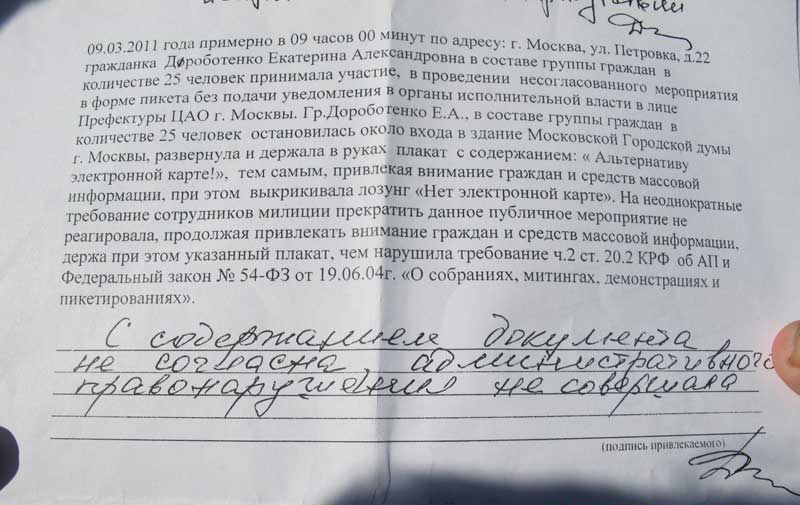 09.03.2011 года примерно в 09 часов 00 минут по адресу: г. Москва, ул. Петровка, д.22
гражданка Дороботенко Екатерина Александровна в составе группы граждан в
количестве 25 человек принимала участие, в проведении несогласованного мероприятия
в форме пикета без подачи уведомления в органы исполнительной власти в лице
Префектуры ЦАО г. Москвы. Гр.Дороботенко Е.А., в составе группы граждан в
количестве 25 человек остановилась около входа в здание Московской Городской думы
г. Москвы, развернула и держала в руках плакат с содержанием: « Альтернативу
электронной карте!», тем самым, привлекая внимание граждан и средств массовой
информации, при этом выкрикивала лозунг «Нет электронной карте». На неоднократные
требование сотрудников милиции прекратить данное публичное мероприятие не
реагировала, продолжая привлекать внимание граждан и средств массовой информации,
держа при этом указанный плакат, чем нарушила требование ч.2 ст. 20.2 КРФ об АП и
Федеральный закон № 54-ФЗ от 19.06.04г. «О собраниях, митингах, демонстрациях и
пикетированиях».
С содержанием документа
не согласна, административного
правонарушения не совершала
(подпись привлекаемого)